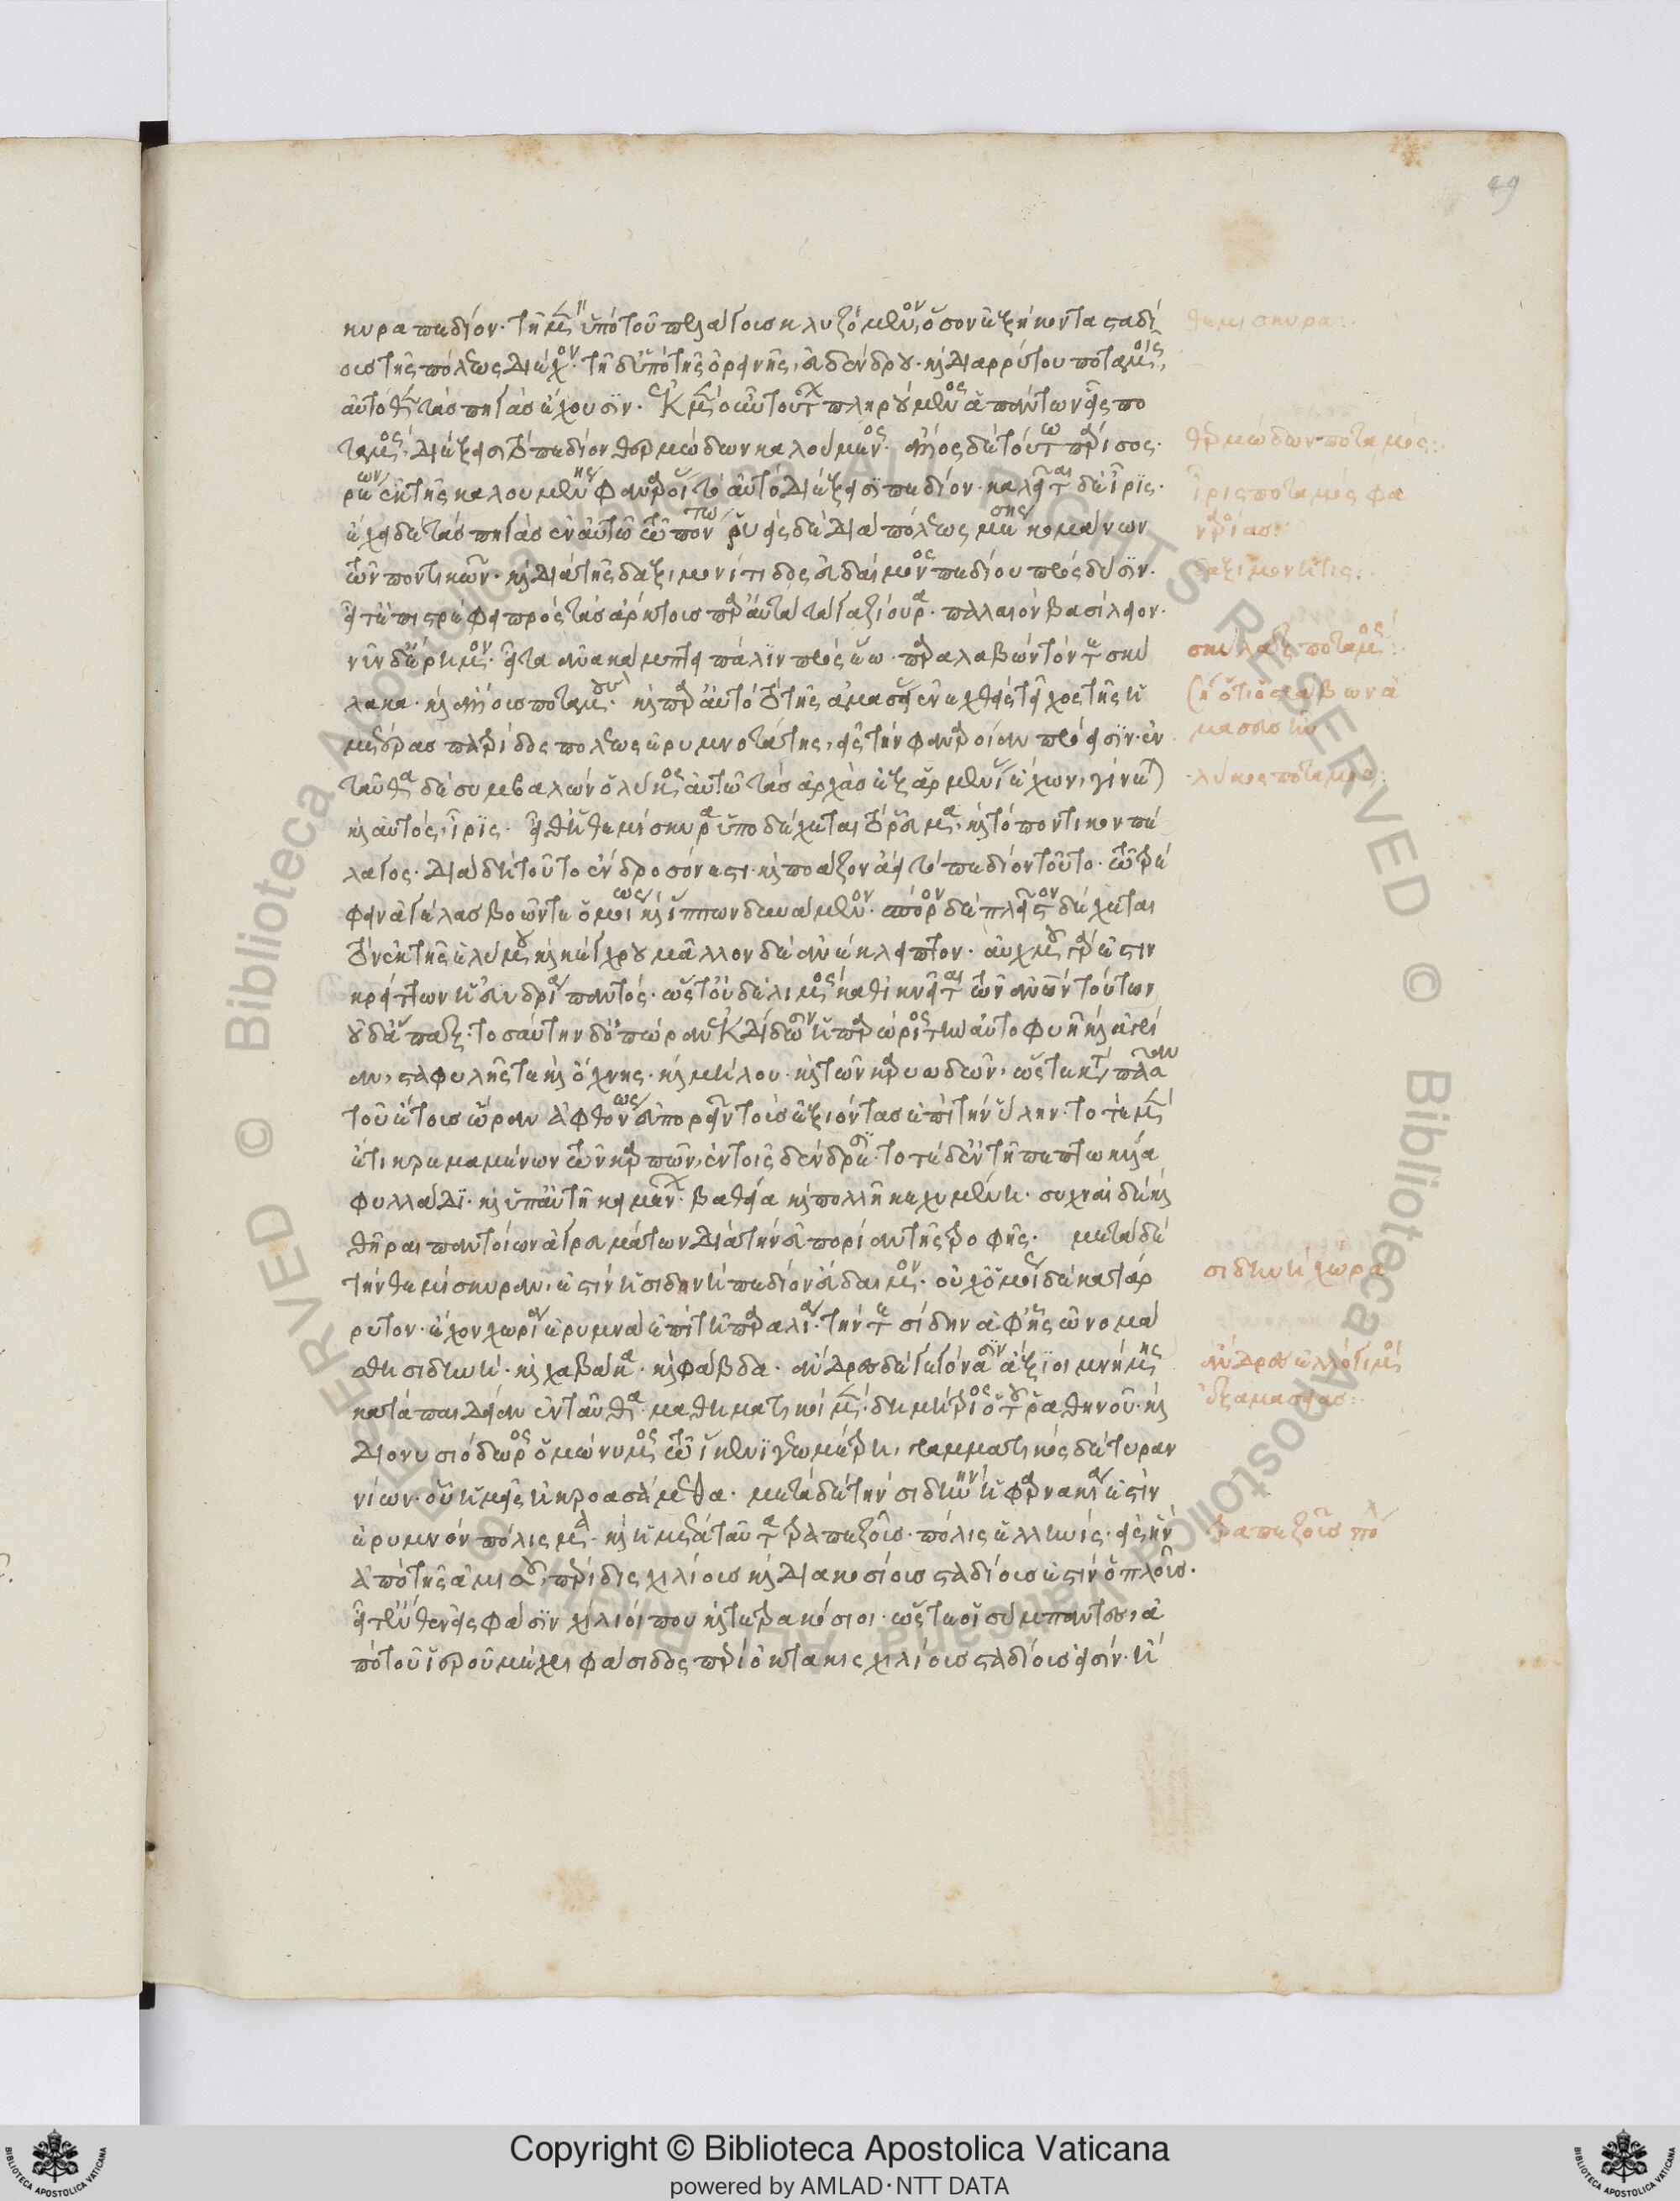 49
κυρα πεδίον· τῇ μὲν ὑπὸ τοῦ πελάγους κλυζόμενον, ὅσον ἑξήκοντα σταδί
ους τῆς πόλεως διέχον· τῇ δ' ὑπὸ τῆς ὀρεινῆς, εὐδένδρου· καὶ διαρρύτου ποταμοῖς,
αὐτόθεν τὰς πηγὰς ἔχουσιν· εἷς μὲν οὖν ἐκ τούτων πληρούμενος ἁπάντων εἷς πο
ταμὸς, διέξεισι τὸ πεδίον θερμώδων καλούμενος· ἄλλος δὲ τούτῳ πάρισος·
ῥέων ἐκ τῆς καλουμένης φαναροίας τὸ αὐτὸ διέξεισι πεδίον· καλεῖται δὲ ἶρις·
ἔχει δὲ τὰς πηγὰς ἐν αὐτῷ τῷ πόντῳ ῥυεὶς δὲ διὰ πόλεως μέσης κομάνων
τῶν ποντικῶν· καὶ διὰ τῆς δαξιμονίτιδος εὐδαίμονος πεδίου πρὸς δύσιν·
εἶτ' ἐπιστρέφει πρὸς τὰς ἄρκτους παρ' αὐτὰ τὰ γαζίουρα· παλαιὸν βασίλειον·
νῦν δ' ἔρημον· εἶτα ἀνακάμπτει πάλιν πρὸς ἕω· παραλαβὼν τόν τε σκύ
λακα· καὶ ἄλλους ποταμούς· καὶ παρ' αὐτὸ τὸ τῆς ἀμασείας ἐνεχθεὶς τεῖχος τῆς ἡ
μετέρας πατρίδος πόλεως ἐρυμνοτάτης, εἰς τὴν φανάροιαν πρόεισιν· ἐν
ταῦθα δὲ συμβαλὼν ὁ λύκος αὐτῷ τὰς ἀρχὰς ἐξ ἀρμενίας ἔχων, γίνεται
καὶ αὐτὸς, ἶρις· εἶθ' ἡ θεμίσκυρα ὑποδέχεται τὸ ῥεῦμα, καὶ τὸ ποντικὸν πέ
λαγος· διὰ δὲ τοῦτο ἔνδροσόν ἐστι καὶ ποάζον ἀεὶ τὸ πεδίον τοῦτο· τρέ
φειν ἀγέλας βοῶν τε ὁμοίως καὶ ἵππων δυνάμενον· σπόρον δὲ πλεῖστον δέχεται
τὸν ἐκ τῆς ἐλύμου καὶ κέγχρου μᾶλλον δὲ ἀνέκλειπτον· αὐχμοῦ γάρ ἐστιν
κρείττων ἡ εὐυδρία παντός· ὥστ' οὐδὲ λιμὸς καθικνεῖται τῶν ἀνθρώπων τούτων
οὐδ' ἅπαξ· τοσαύτην δ' ὀπώραν ἐκδίδωσιν ἡ παρώρειος τὴν αὐτοφυῆ καὶ ἀγρί
αν, σταφυλῆς τε καὶ ὄχνης· καὶ μήλου· καὶ τῶν καρυωδῶν, ὥστε κατὰ πᾶσαν
τοῦ ἔτους ὥραν ἀφθόνως εὐπορεῖν τοὺς ἐξιόντας ἐπὶ τὴν ὕλην· τοτὲ μὲν
ἔτι κρεμαμένων τῶν καρπῶν, ἐν τοῖς δένδρεσι· τοτὲ δ' ἐν τῇ πεπτωκυίᾳ
φυλλάδι· καὶ ὑπ' αὐτῇ κειμένων· βαθείᾳ καὶ πολλῇ κεχυμένῃ· συχναὶ δὲ καὶ
θῆραι παντοίων ἀγρευμάτων διὰ τὴν εὐπορίαν τῆς τροφῆς· μετὰ δὲ
τὴν θεμίσκυραν, ἐστὶν ἡ σιδηνὴ πεδίον εὔδαιμον· οὐχ ὁμοίως δὲ κατάρ
ρυτον· ἔχον χωρία ἐρυμνὰ ἐπὶ τῇ παραλίᾳ· τήν τε σίδην ἀφ' ἧς ὠνομά
σθη σιδηνή· καὶ χάβακα· καὶ φάβδα· ἄνδρες δὲ γεγόνασιν ἄξιοι μνήμης
κατὰ παιδείαν ἐνταῦθα· μαθηματικοὶ μὲν· δημήτριος ὁ τοῦ ῥαθηνοῦ· καὶ
διονυσιόδωρος ὁμώνυμος τῷ ἴωνι γεωμέτρῃ, γραμματικὸς δὲ τυραν
νίων· οὗ ἡμεῖς ἠκροασάμεθα· μετὰ δὲ τὴν σιδηνὴν ἡ φαρνακία ἐστὶν
ἐρυμνὸν πόλισμα· καὶ ἡ μετὰ ταῦτα τραπεζοῦς· πόλις ἑλληνίς· εἰς ἣν
ἀπὸ τῆς ἀμισοῦ, περὶ δισχιλίους καὶ διακοσίους σταδίους ἐστὶν ὁ πλοῦς·
εἶτ' ἔνθεν εἰς φᾶσιν χίλιοί που καὶ τετρακόσιοι· ὥστε οἱ σύμπαντες, ἀ
πὸ τοῦ ἱεροῦ μέχρι φάσιδος περὶ ὀκτακισχιλίους σταδίους εἰσίν· ἢ
θεμισκυρα:
θερμώδων ποταμός:
ἶρις ποταμός φα
ναροίας
δαξιμονῖτις:
σκύλαξ ποταμός:
μασείας
λύκος ποταμος:
σιδηνὴ χώρα
ἄνδρες ἐλλόγιμοι
ἐξ ἀμασείας:
τραπεζοῦς πόλ
Copyright © Biblioteca Apostolica Vaticana
powered by AMLAD·NTT DATA